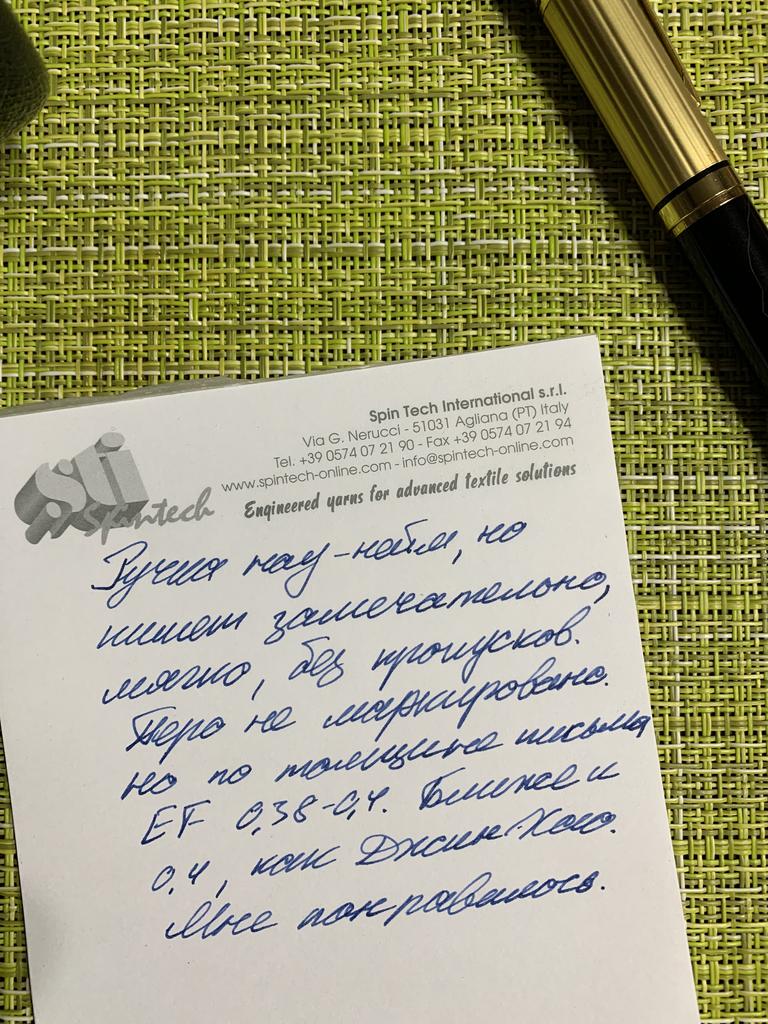 Spin Tech International s.r.l.
Via G. Nerucci - 51031 Agliana (PT) Italy
Tel. +39 0574 07 21 90 - Fax +39 0574 07 21 94
www.spintech-online.com - info@spintech-online.com
Engineered yarns for advanced textile solutions
sti
Spintech
Ручка ноу-нейм, но
пишет замечательно,
мягко, без пропусков.
Перо не маркировано.
но по толщине письма
EF 0,38-0,4. Ближе к
0,4, как Джин Хао.
Мне понравилось.